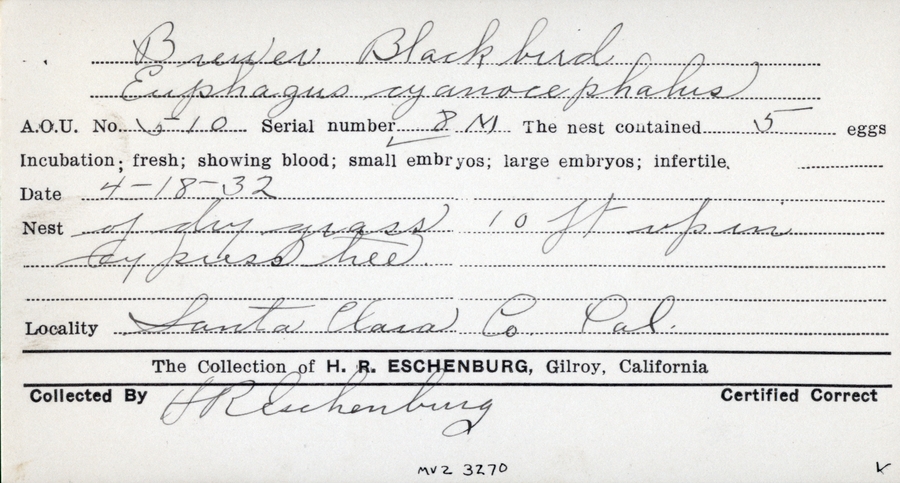 Brewer Blackbird
Euphagus cyanocephalus
A.O.U. No. 510 Serial number 8 M The nest contained 5 eggs
Incubation; fresh; showing blood; small embryos; large embryos; infertile.
Date 4-18-32
Nest of dry grass 10 ft up in
cypress tree.
Locality Santa Clara Co Cal.
The Collection of H. R. ESCHENBURG, Gilroy, California
Collected By H R Eschenburg Certified Correct
MVZ 3270